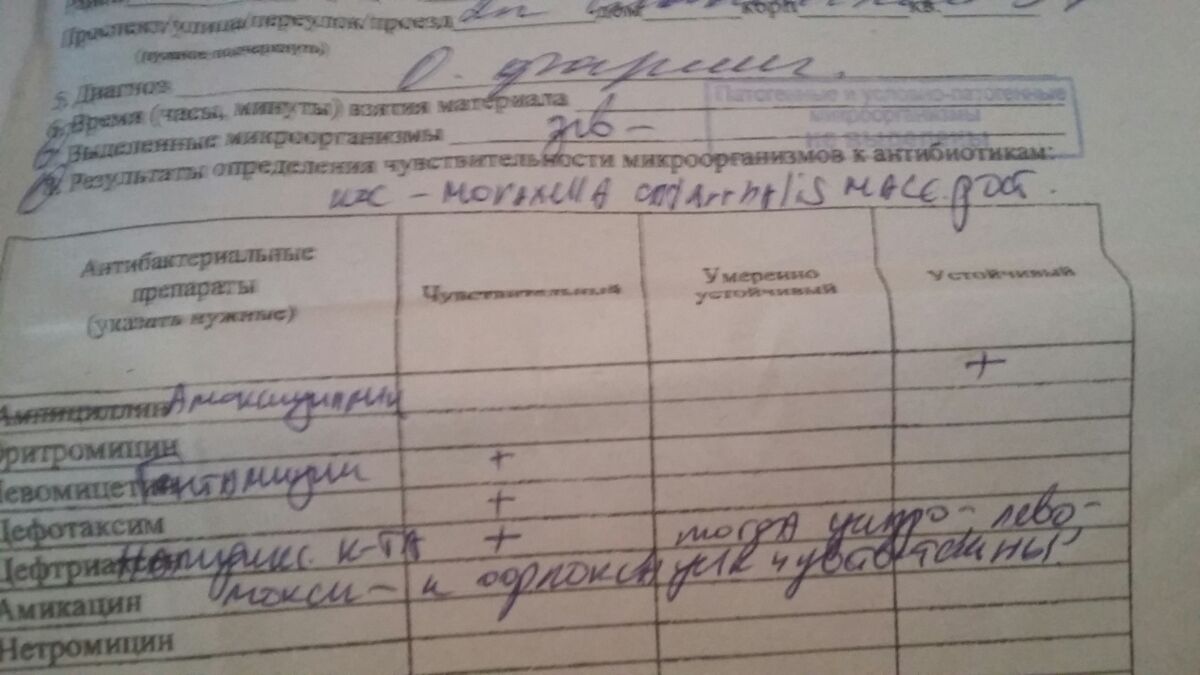 Проспект/улица/переулок/проезд дом корп кв
(нужное подчеркнуть)
5. Диагноз О. фаринг.
6. Время (часы, минуты) взятия материала
Патогенные и условно-патогенные
микроорганизмы
не выделены
7. Выделенные микроорганизмы зев –
8. Результаты определения чувствительности микроорганизмов к антибиотикам:
нос – MORAXELLA CATARRHALIS МАСС. рост.
Антибактериальные
препараты
(указать нужные)
Чувствительный
Умеренно
устойчивый
Устойчивый
+
Ампициллин Амоксициллин
Эритромицин +
Левомицетин Гентамицин +
Цефотаксим +
Налидикс. к-та тогда ципро-, лево-
мокси- и офлоксацин чувствит
Амикацин
Нетромицин